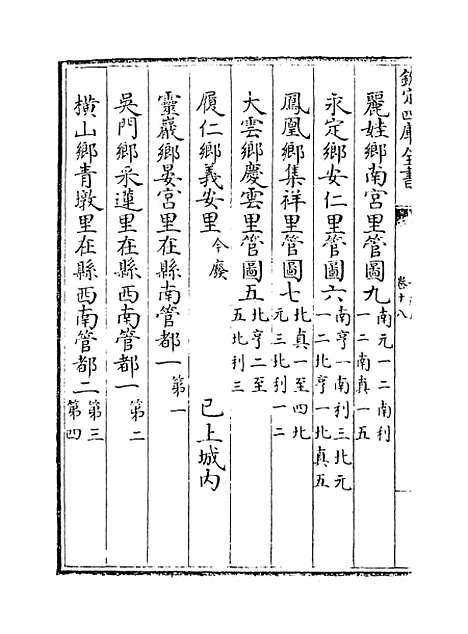 欽定四庫全書
卷十八
麗娃鄉南宮里管圖九 南元一二南利一二南真一五
永定鄉安仁里管圖六 南亨一南利三北元一二北亨一北真五
鳳凰鄉集祥里管圖七 北真一至四北元三北利一二
大雲鄉慶雲里管圖五 北亨二至五北利三
履仁鄉義安里 今廢 已上城内
靈巖鄉晏宮里在縣南管都一 第一
吳門鄉采蓮里在縣西南管都一 第二
横山鄉青墩里在縣西南管都二 第三第四